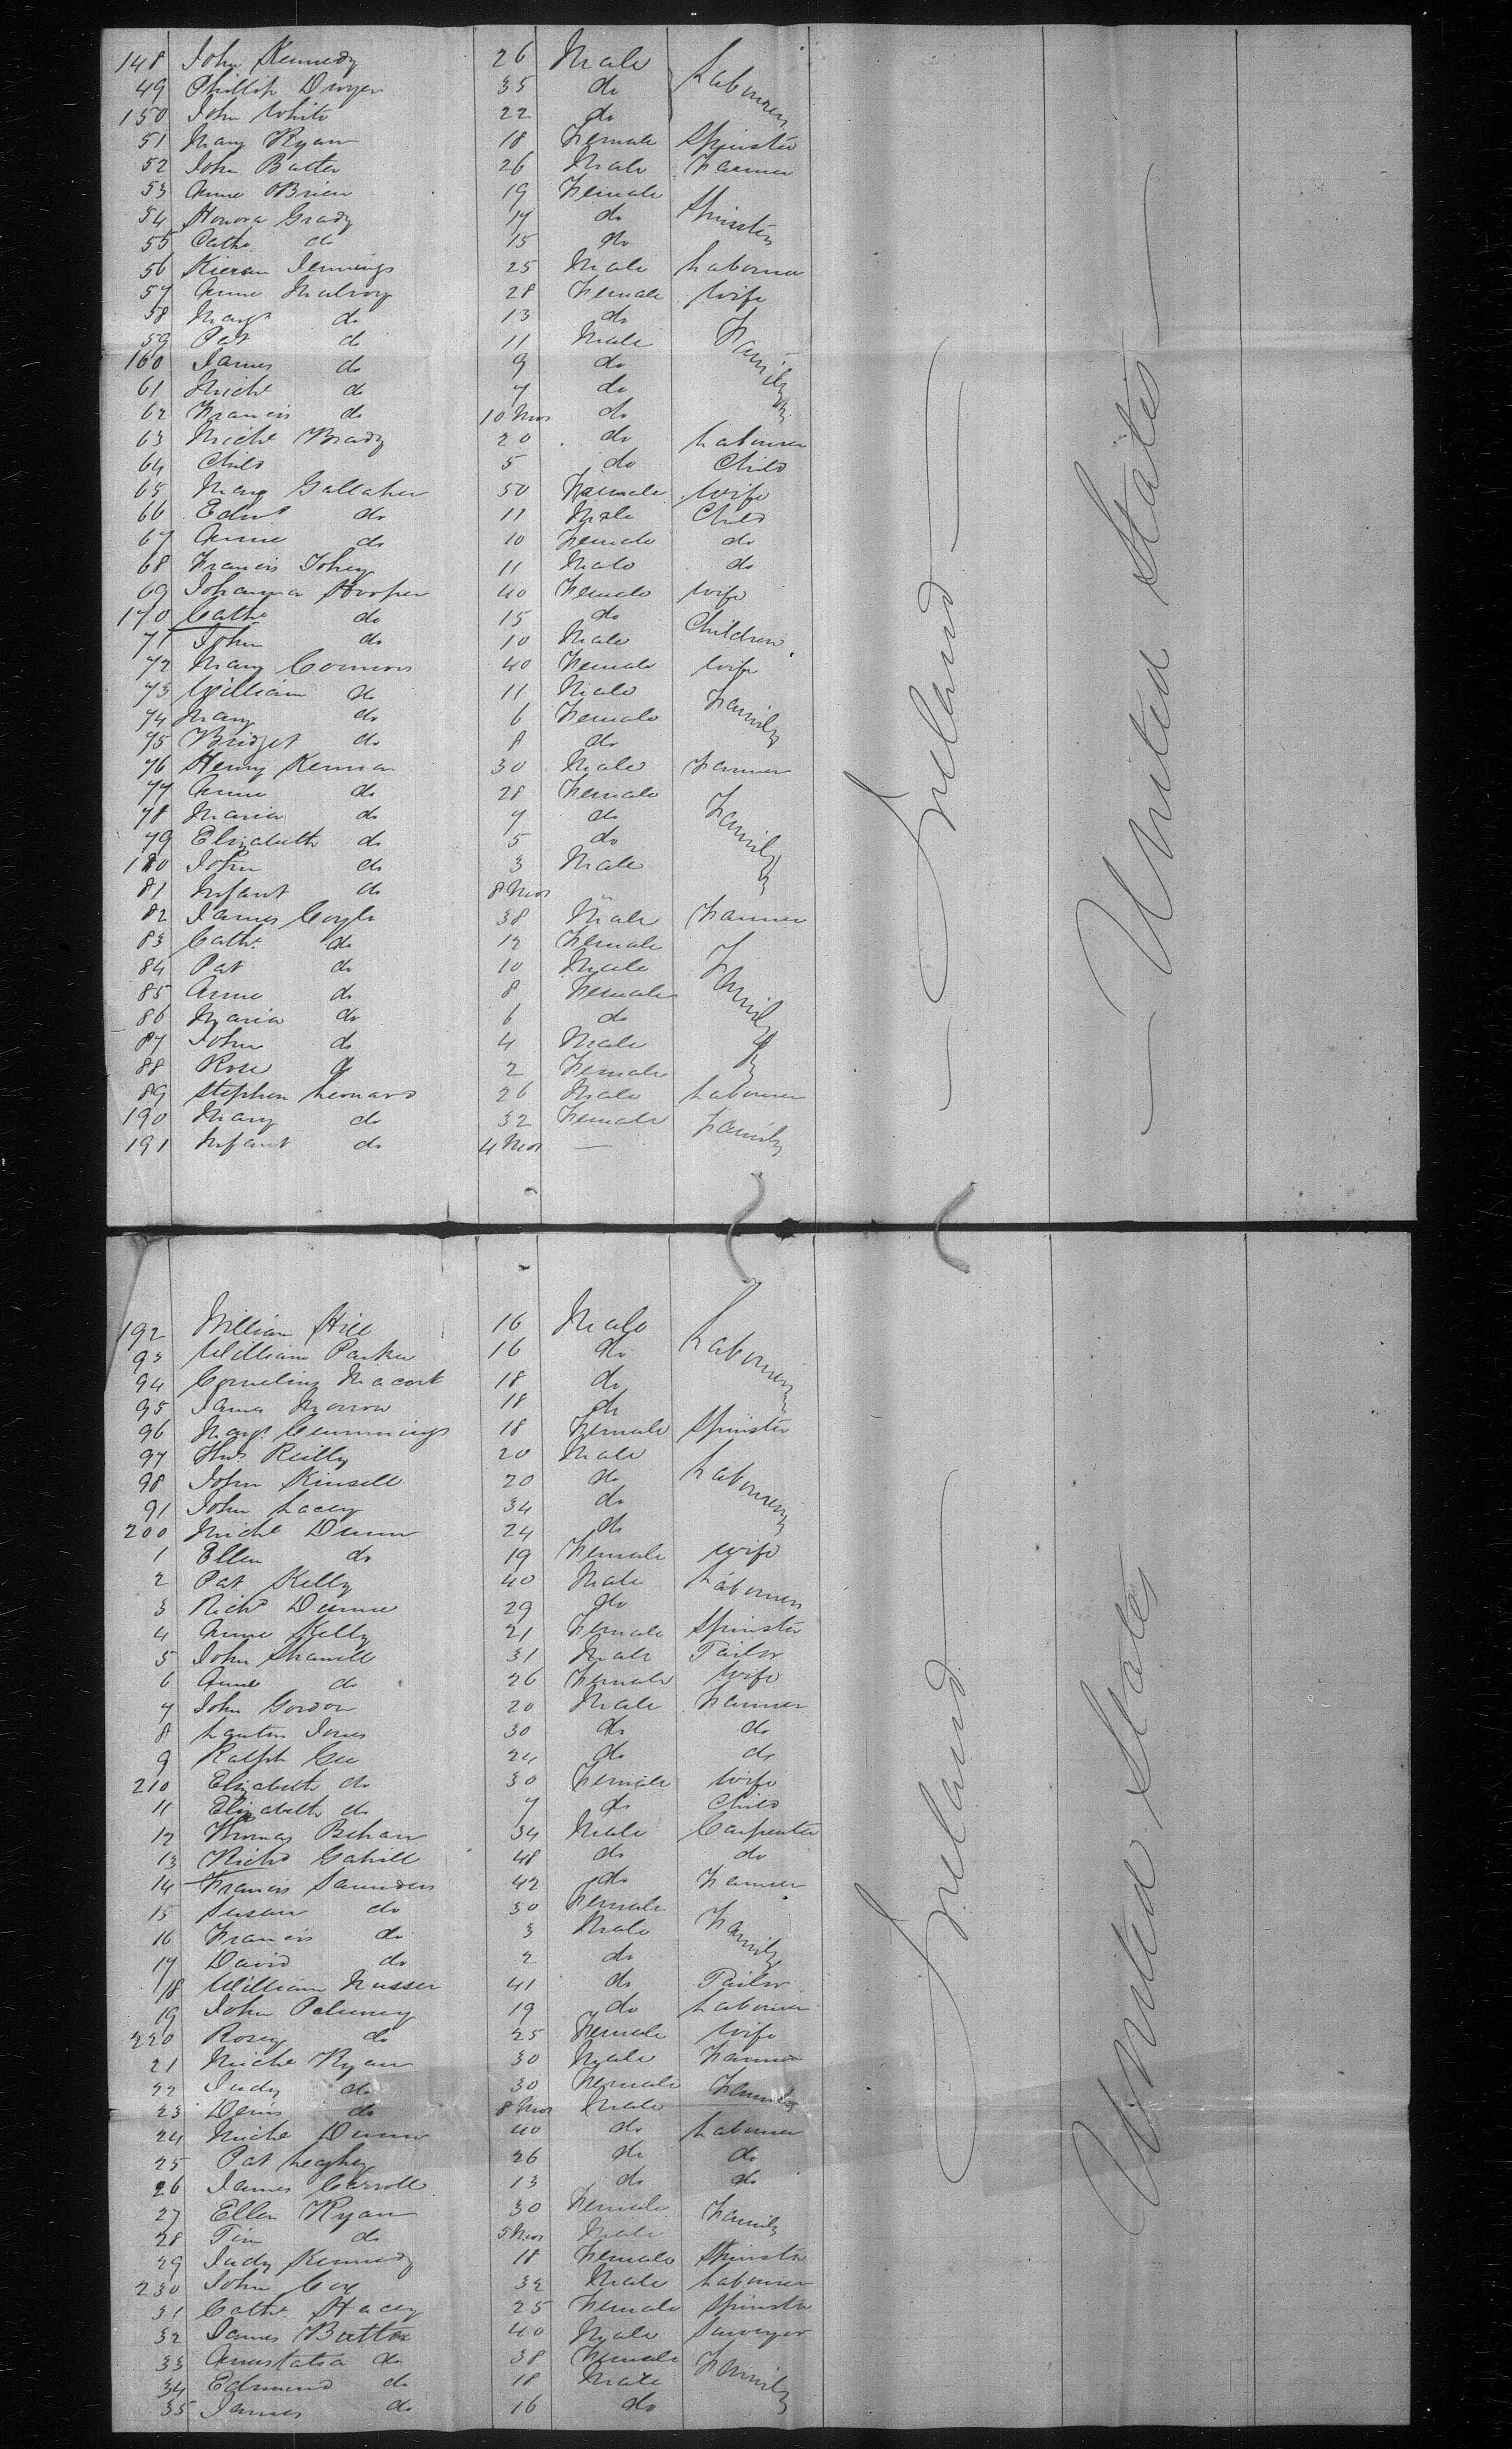 148 John Kennedy 26 Male Labourers
49 Phillip Dwyer 35 do
150 John White 22 do
51 Mary Ryan 18 Female Spinster
52 John Batter 26 Male Farmer
53 Anne OBrien 19 Female Spinsters
54 Honora Grady 17 do
55 Cathe do 15 do
56 Kieran Jennings 25 Male Labourer
57 Anne Mulroy 28 Female Wife
58 Margt do 13 do Family
59 Pat do 11 Male
160 James do 9 do
61 Michl do 7 do
62 Francis do 10 Mos do
63 Michl Brady 20 do Labourer
64 Child 5 do Child
65 Mary Gallaher 50 Female Wife
66 Edwd do 11 Male Child
67 Annie do 10 Female do
68 Francis Tohey 11 Male do
69 Johanna Hooper 40 Female Wife
170 Cathe do 15 do Children
71 John do 10 Male
72 Mary Connors 40 Female Wife
73 William do 11 Male Family
74 Mary do 6 Female
75 Bridget do 8 do
76 Henry Kernan 30 Male Farmer
77 Anne do 28 Female Family
78 Maria do 7 do
79 Elizabeth do 5 do
180 John do 3 Male
81 Infant do 8 Mos "
82 James Coyle 38 Male Farmer
83 Cathe do 12 Female Family
84 Pat do 10 Male
85 Anne do 8 Female
86 Maria do 6 do
87 John do 4 Male
88 Rose do 2 Female
89 Stephen Leonard 26 Male Labourer
190 Mary do 32 Female Family
191 Infant do 4 Mos —
— Ireland —
— United States —
192 William Hill 16 Male Labourers
93 William Parker 16 do
94 Cornelius 18 do
95 James Morrow 18 do
96 Margt Cummings 18 Female Spinster
97 Thos Reilly 20 Male Labourers
98 John Kinsell 20 do
91 John Lacey 34 do
200 Michl Dunn 24 do
1 Ellen do 19 Female Wife
2 Pat Kelly 40 Male Labourers
3 Richd Dunne 29 do
4 Anne Kelly 21 Female Spinster
5 John 31 Male Tailor
6 Anne do 26 Female Wife
7 John Gordon 20 Male Farmer
8 Jones 30 do do
9 Ralph Gee 24 do do
210 Elizabeth do 30 Female Wife
11 Elizabeth do 7 do Child
12 Thomas Behan 34 Male Carpenter
13 Richd Cahill 48 do do
14 Francis Saunders 42 do Farmer
15 Susan do 30 Female Family
16 Francis do 3 Male
17 David do 2 do
18 William Nusser 41 do Tailor
19 John 19 do Labourer
220 Rosey do 25 Female Wife
21 Michl Ryan 30 Male Farmer
22 Judy do 30 Female Family
23 Denis do 8 Mos Male
24 Michl Dunn 40 do Labourer
25 Pat Leahy 26 do do
26 James Carroll 13 do do
27 Ellen Ryan 30 Female Family
28 Tim do 5 Mos Male
29 Judy Kennedy 18 Female Spinster
230 John Coy 32 Male Labourer
31 Cathe Stacey 25 Female Spinster
32 James Batton 40 Male Surveyor
33 Annstatia do 38 Female Family
34 Edmund do 18 Male
35 James do 16 do
Ireland
United States